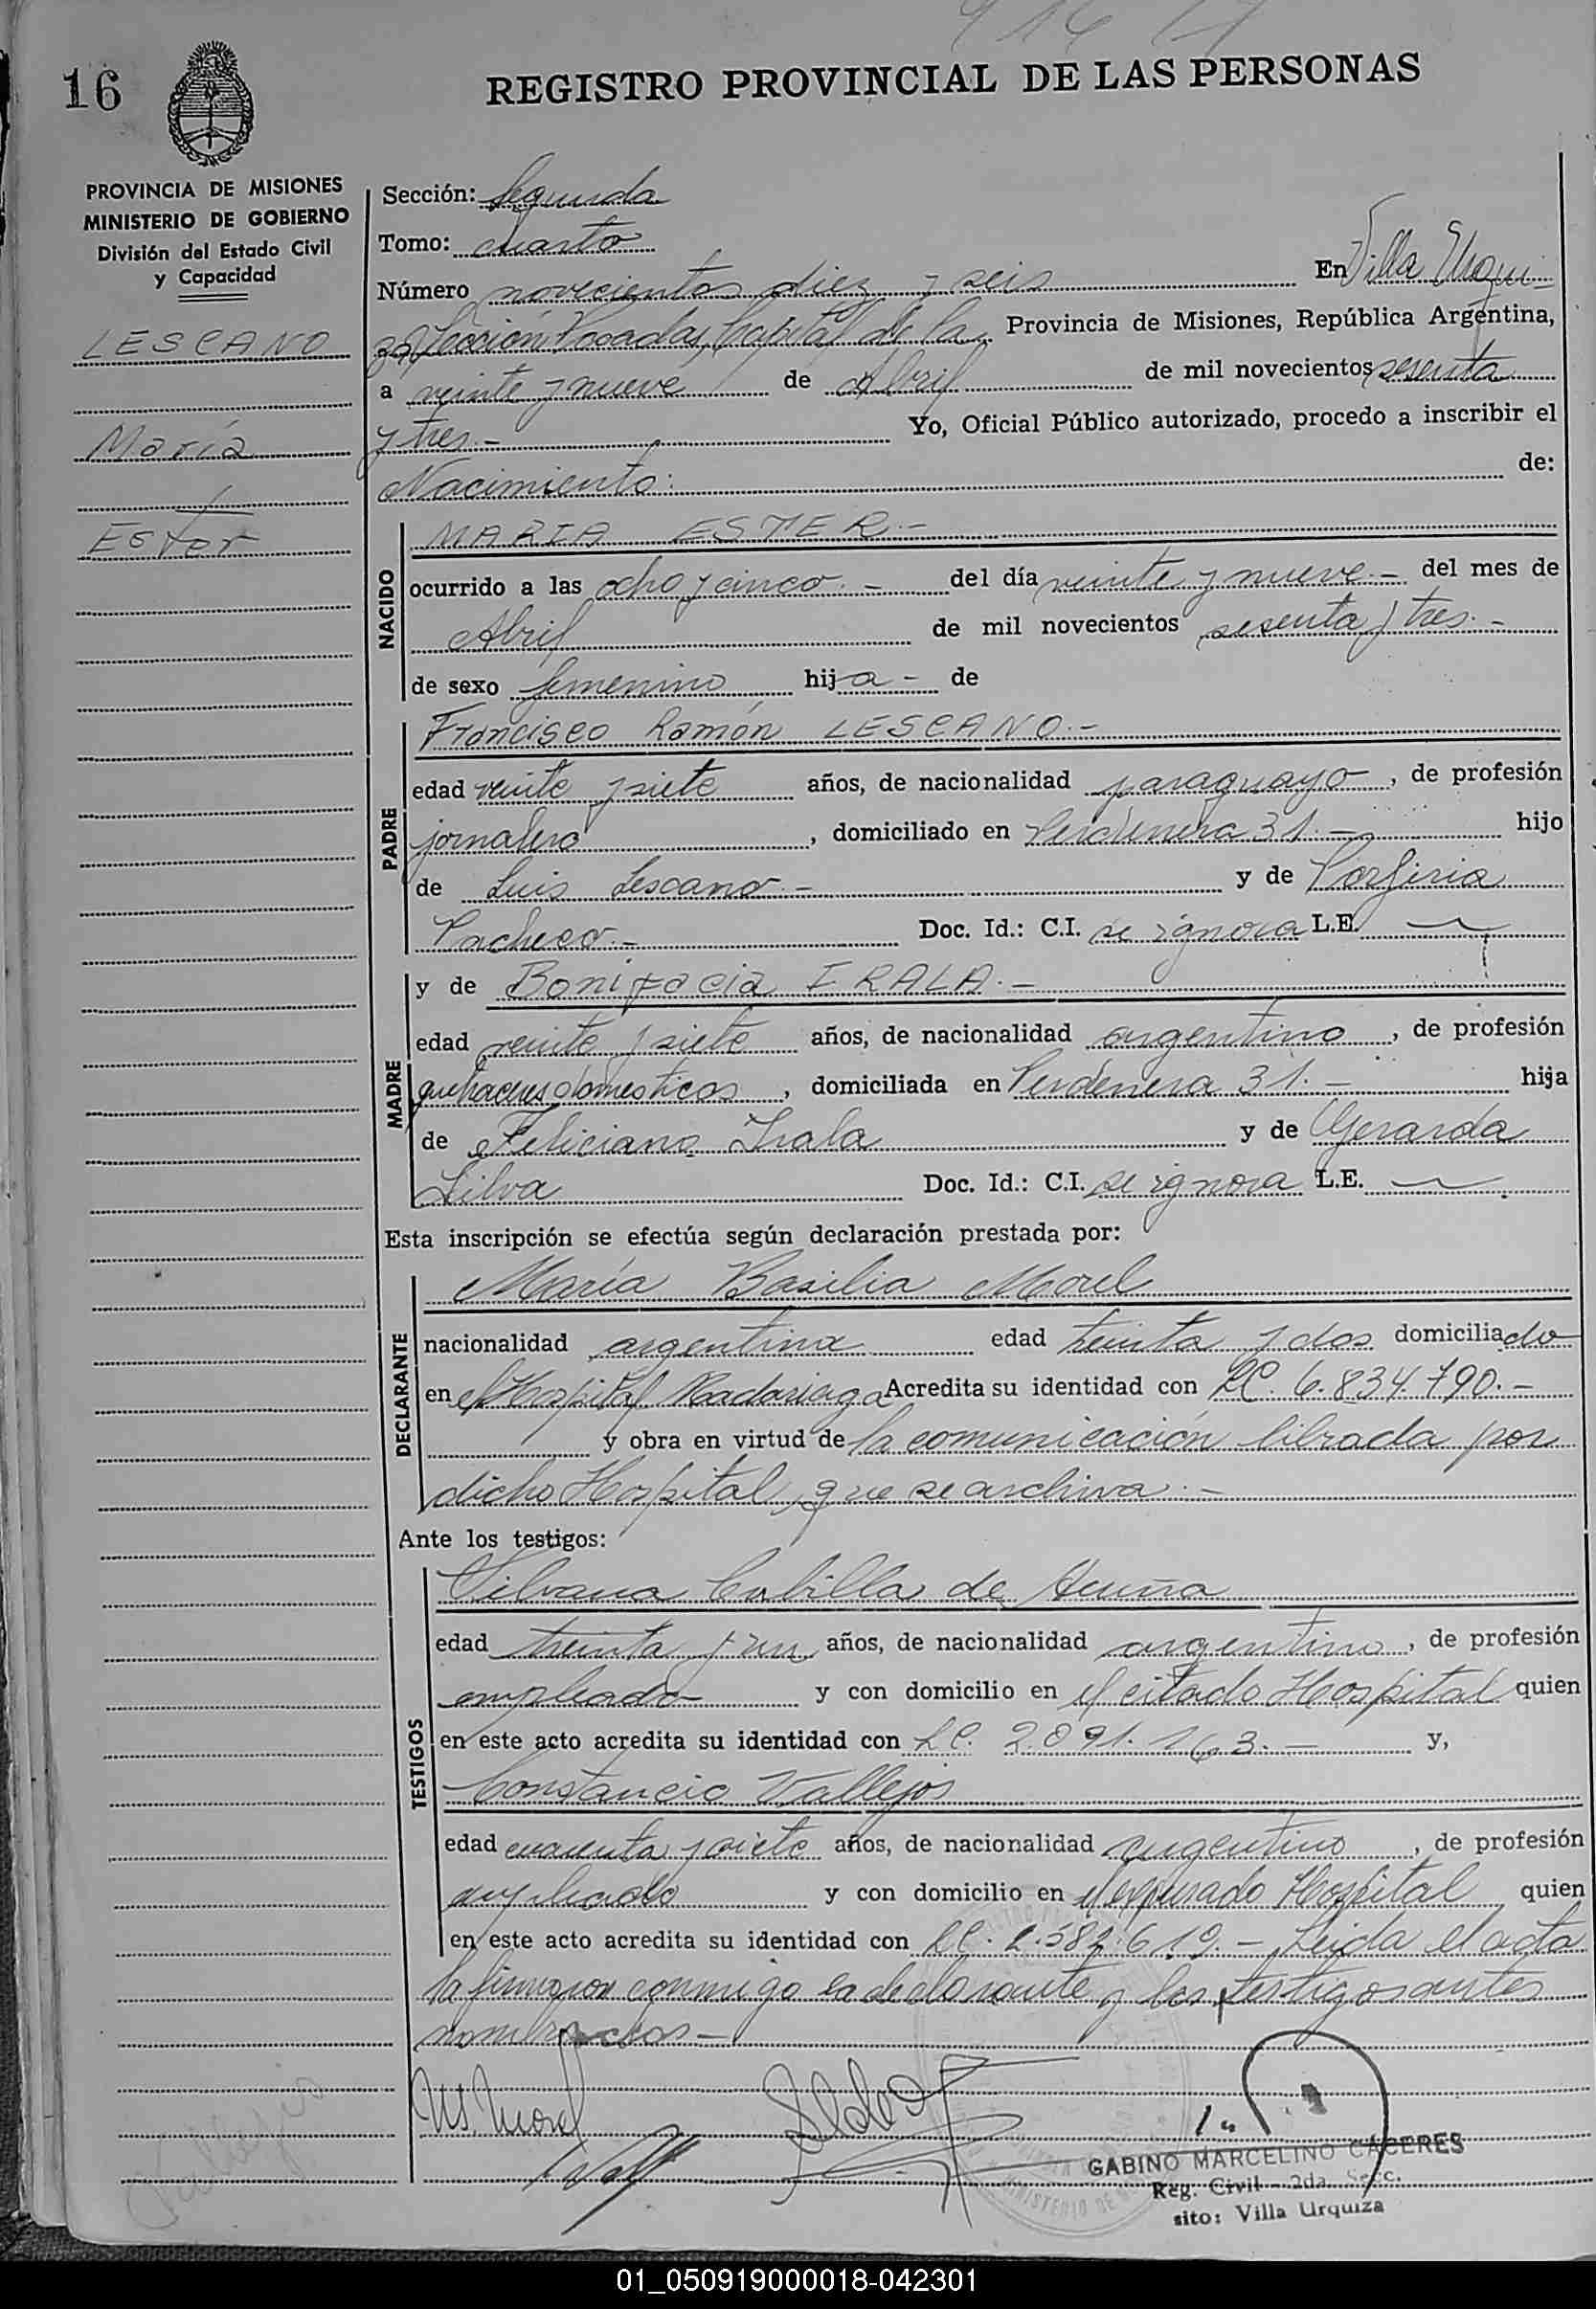 916
16
REGISTRO PROVINCIAL DE LAS PERSONAS
PROVINCIA DE MISIONES
MINISTERIO DE GOBIERNO
División del Estado Civil
y Capacidad
LESCANO
María
Ester
Sección: Segunda
Tomo: cuarto
Número novecientos diez y seis En Villa Urqui
za, Sección Posadas, Capital de la Provincia de Misiones, República Argentina,
a veinte y nueve de Abril de mil novecientos sesenta
y tres.- Yo, Oficial Público autorizado, procedo a inscribir el
Nacimiento: de:
NACIDO
MARIA ESTER.-
ocurrido a las ocho y cinco.- del día veinte y nueve.- del mes de
Abril de mil novecientos sesenta y tres.-
de sexo femenino hija - de
PADRE
Francisco Ramón LESCANO.-
edad veinte y siete años, de nacionalidad paraguayo, de profesión
jornalero, domiciliado en Perdenera 31.- hijo
de Luis Lescano.- y de Porfiria
Pacheco.- Doc. Id.: C.I. se ignora L.E.
MADRE
y de Bonifacia IRALA.-
edad veinte y siete años, de nacionalidad argentino, de profesión
quehaceres domesticos, domiciliada en Perdenera 31.- hija
de Feliciano Irala y de Gerarda
Silva Doc. Id.: C.I. se ignora L.E.
Esta inscripción se efectúa según declaración prestada por:
DECLARANTE
María Basilia Morel
nacionalidad argentina edad treinta y dos domiciliado
en el Hospital Madariaga Acredita su identidad con LC. 6.834.790.-
y obra en virtud de la comunicación librada por
dicho Hospital, que se archiva.-
Ante los testigos:
TESTIGOS
Silvana Cubilla de Acuña
edad treinta y un años, de nacionalidad argentino, de profesión
empleado y con domicilio en el citado Hospital quien
en este acto acredita su identidad con LC. 2.091.163.- y,
Constancio Vallejos
edad cuarenta y siete años, de nacionalidad argentino, de profesión
empleado y con domicilio en el expresado Hospital quien
en este acto acredita su identidad con 582.619.- Leida el acta
la firman conmigo la declarante y los testigos antes
nombrados-
M. Morel
GABINO MARCELINO CACERES
Reg. Civil - 2da. Secc.
sito: Villa Urquiza
Vallejos
01_050919000018-042301